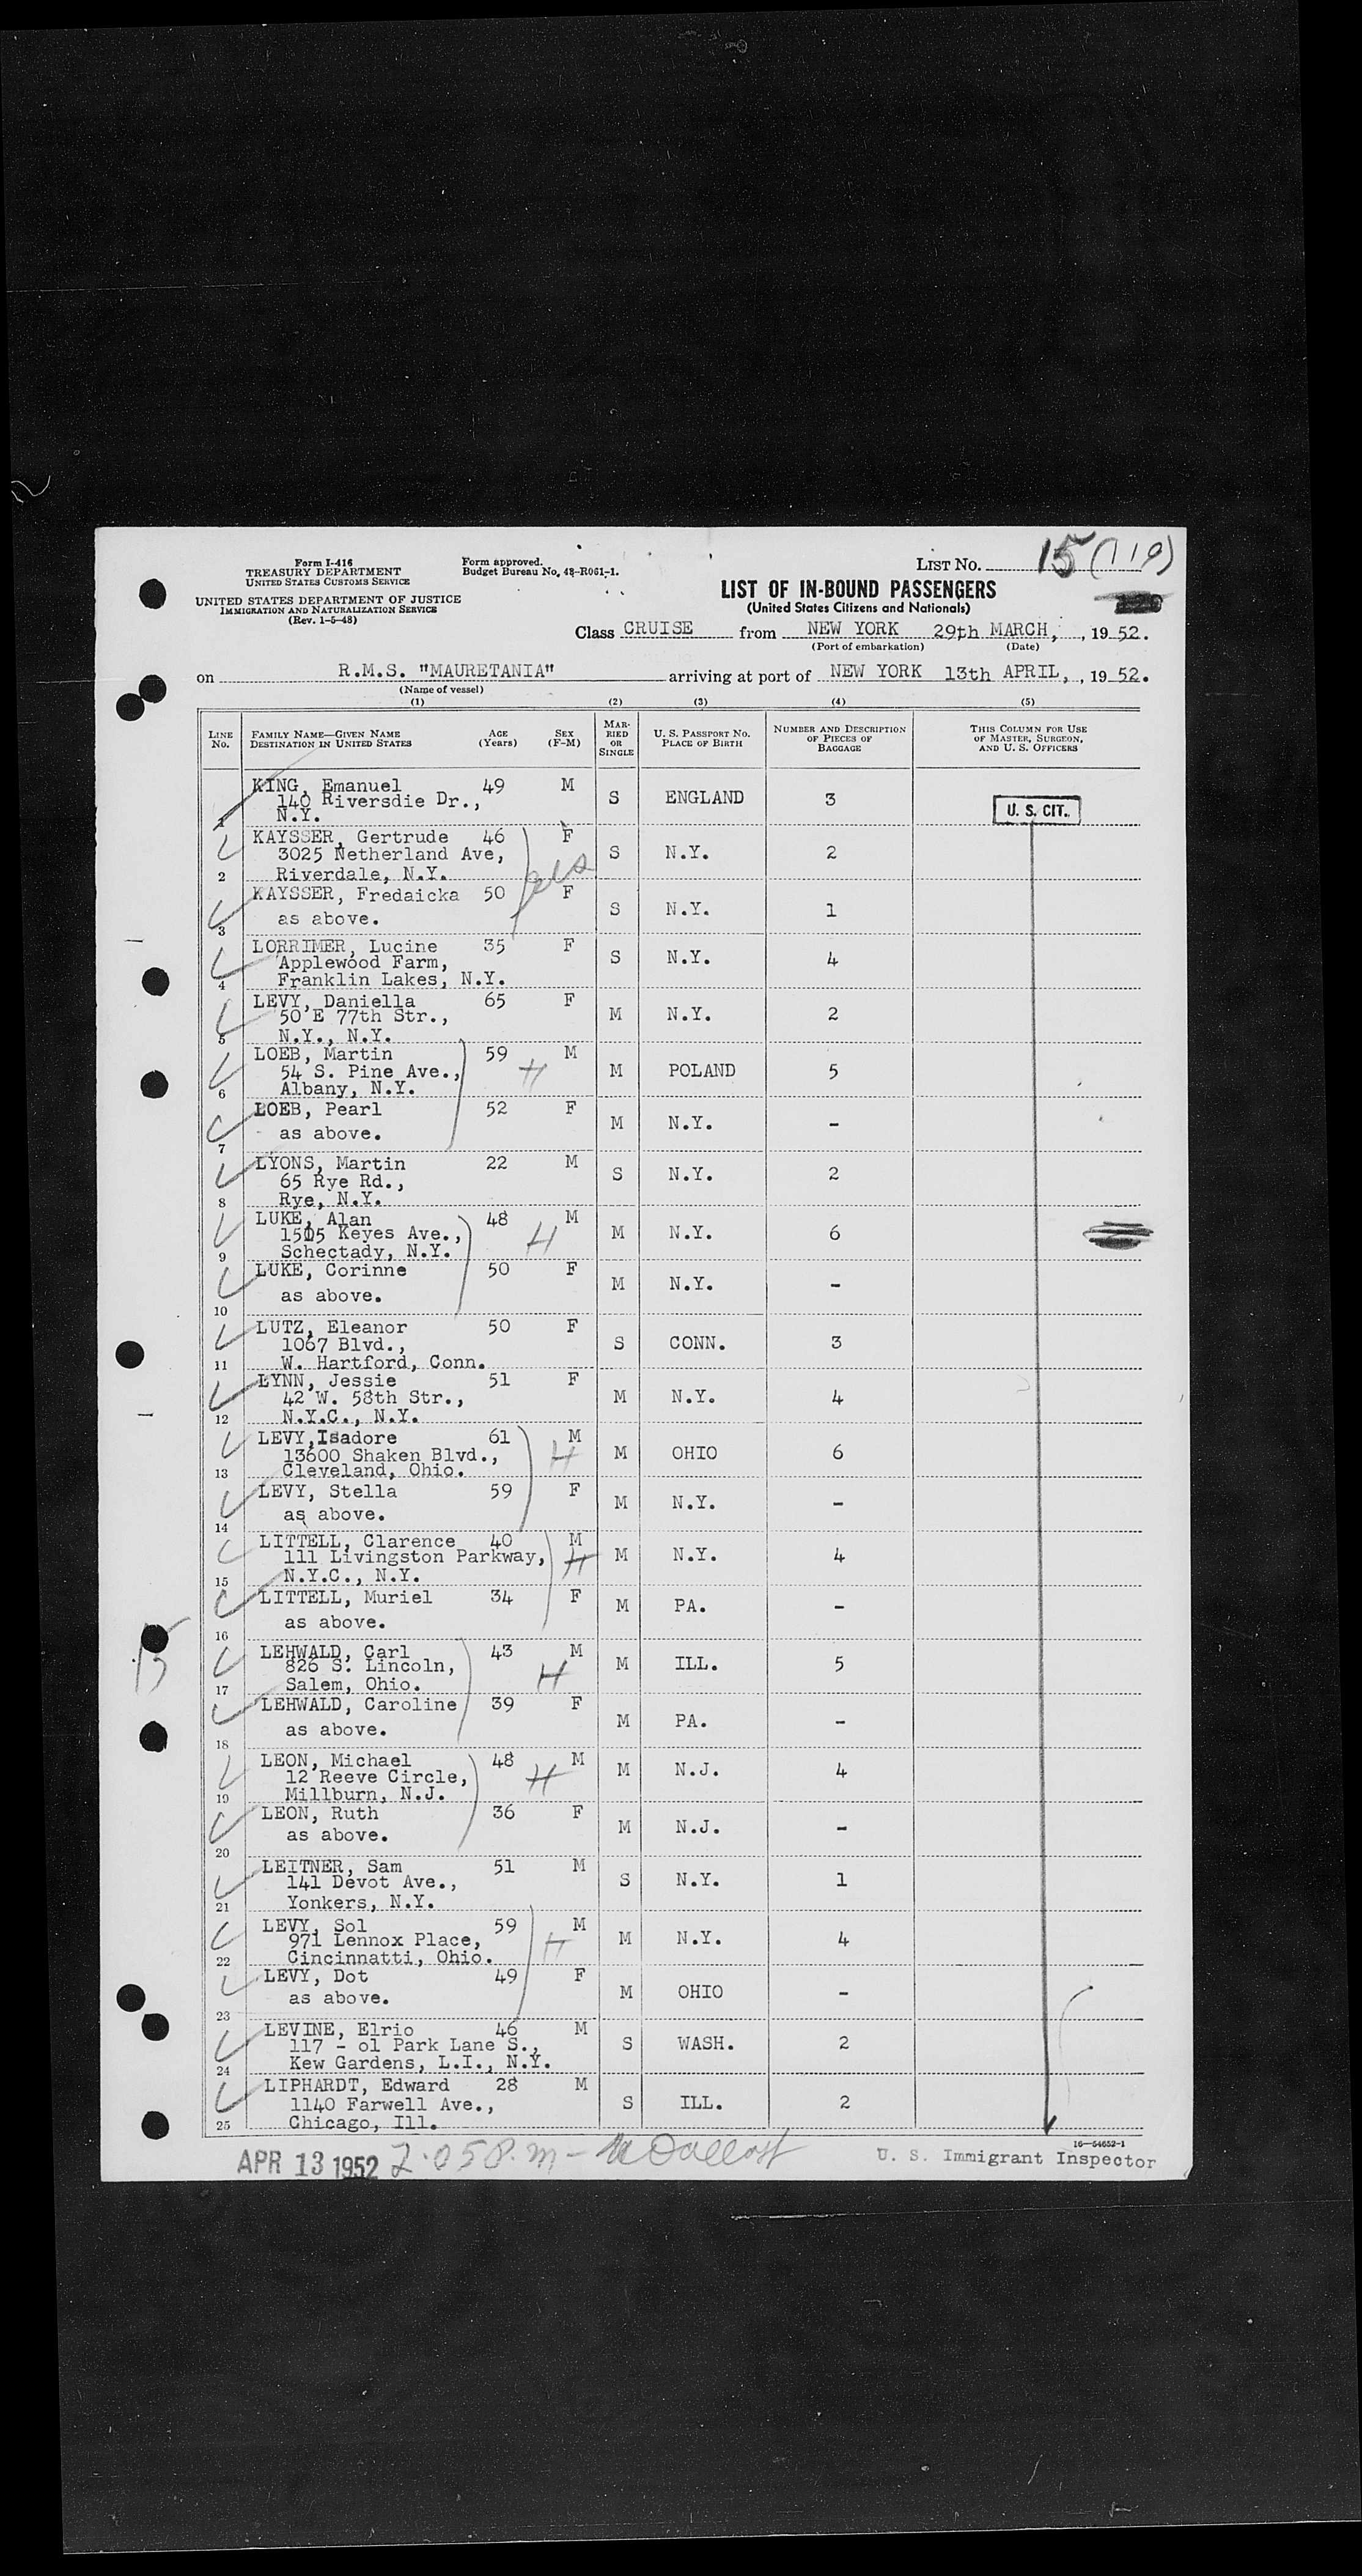 Form I-416
TREASURY DEPARTMENT
UNITED STATES CUSTOMS SERVICE
UNITED STATES DEPARTMENT OF JUSTICE
IMMIGRATION AND NATURALIZATION SERVICE
(Rev. 1-5-48)
Form approved.
Budget Bureau No. 43-R061-1.
LIST NO. 15 (119)
LIST OF IN-BOUND PASSENGERS
(United States Citizens and Nationals)
Class CRUISE from NEW YORK 29th MARCH, , 1952.
(Port of embarkation) (Date)
on R.M.S. "MAURETANIA" arriving at port of NEW YORK 13th APRIL, , 1952.
(Name of vessel)
(1) (2) (3) (4) (5)
LINE NO. FAMILY NAME—GIVEN NAME DESTINATION IN UNITED STATES AGE (Years) SEX (F-M) MARRIED OR SINGLE U. S. PASSPORT NO. PLACE OF BIRTH NUMBER AND DESCRIPTION OF PIECES OF BAGGAGE THIS COLUMN FOR USE OF MASTER, SURGEON, AND U. S. OFFICERS
KING, Emanuel 49 M
140 Riversdie Dr., S ENGLAND 3 U. S. CIT.
1 N.Y.
KAYSSER, Gertrude 46 F
3025 Netherland Ave, S N.Y. 2
2 Riverdale, N.Y.
KAYSSER, Fredaicka 50 F
3 as above. S N.Y. 1
LORRIMER, Lucine 35 F
Applewood Farm, S N.Y. 4
4 Franklin Lakes, N.Y.
LEVY, Daniella 65 F
50 E 77th Str., M N.Y. 2
5 N.Y., N.Y.
LOEB, Martin 59 M
54 S. Pine Ave., H M POLAND 5
6 Albany, N.Y.
LOEB, Pearl 52 F
7 as above. M N.Y. -
LYONS, Martin 22 M
65 Rye Rd., S N.Y. 2
8 Rye, N.Y.
LUKE, Alan 48 M
1515 Keyes Ave., H M N.Y. 6
9 Schectady, N.Y.
LUKE, Corinne 50 F
10 as above. M N.Y. -
LUTZ, Eleanor 50 F
1067 Blvd., S CONN. 3
11 W. Hartford, Conn.
LYNN, Jessie 51 F
42 W. 58th Str., M N.Y. 4
12 N.Y.C., N.Y.
LEVY,Isadore 61 M
13600 Shaken Blvd., H M OHIO 6
13 Cleveland, Ohio.
LEVY, Stella 59 F
14 as above. M N.Y. -
LITTELL, Clarence 40 M
111 Livingston Parkway, H M N.Y. 4
15 N.Y.C., N.Y.
LITTELL, Muriel 34 F
16 as above. M PA. -
15
LEHWALD, Carl 43 M
826 S. Lincoln, H M ILL. 5
17 Salem, Ohio.
LEHWALD, Caroline 39 F
18 as above. M PA. -
LEON, Michael 48 M
12 Reeve Circle, H M N.J. 4
19 Millburn, N.J.
LEON, Ruth 36 F
20 as above. M N.J. -
LEITNER, Sam 51 M
141 Devot Ave., S N.Y. 1
21 Yonkers, N.Y.
LEVY, Sol 59 M
971 Lennox Place, H M N.Y. 4
22 Cincinnatti, Ohio.
LEVY, Dot 49 F
23 as above. M OHIO -
LEVINE, Elrio 46 M
117 - 01 Park Lane S., S WASH. 2
24 Kew Gardens, L.I., N.Y.
LIPHARDT, Edward 28 M
1140 Farwell Ave., S ILL. 2
25 Chicago, Ill.
16—54652-1
APR 13 1952 2.05 P.m - U. S. Immigrant Inspector